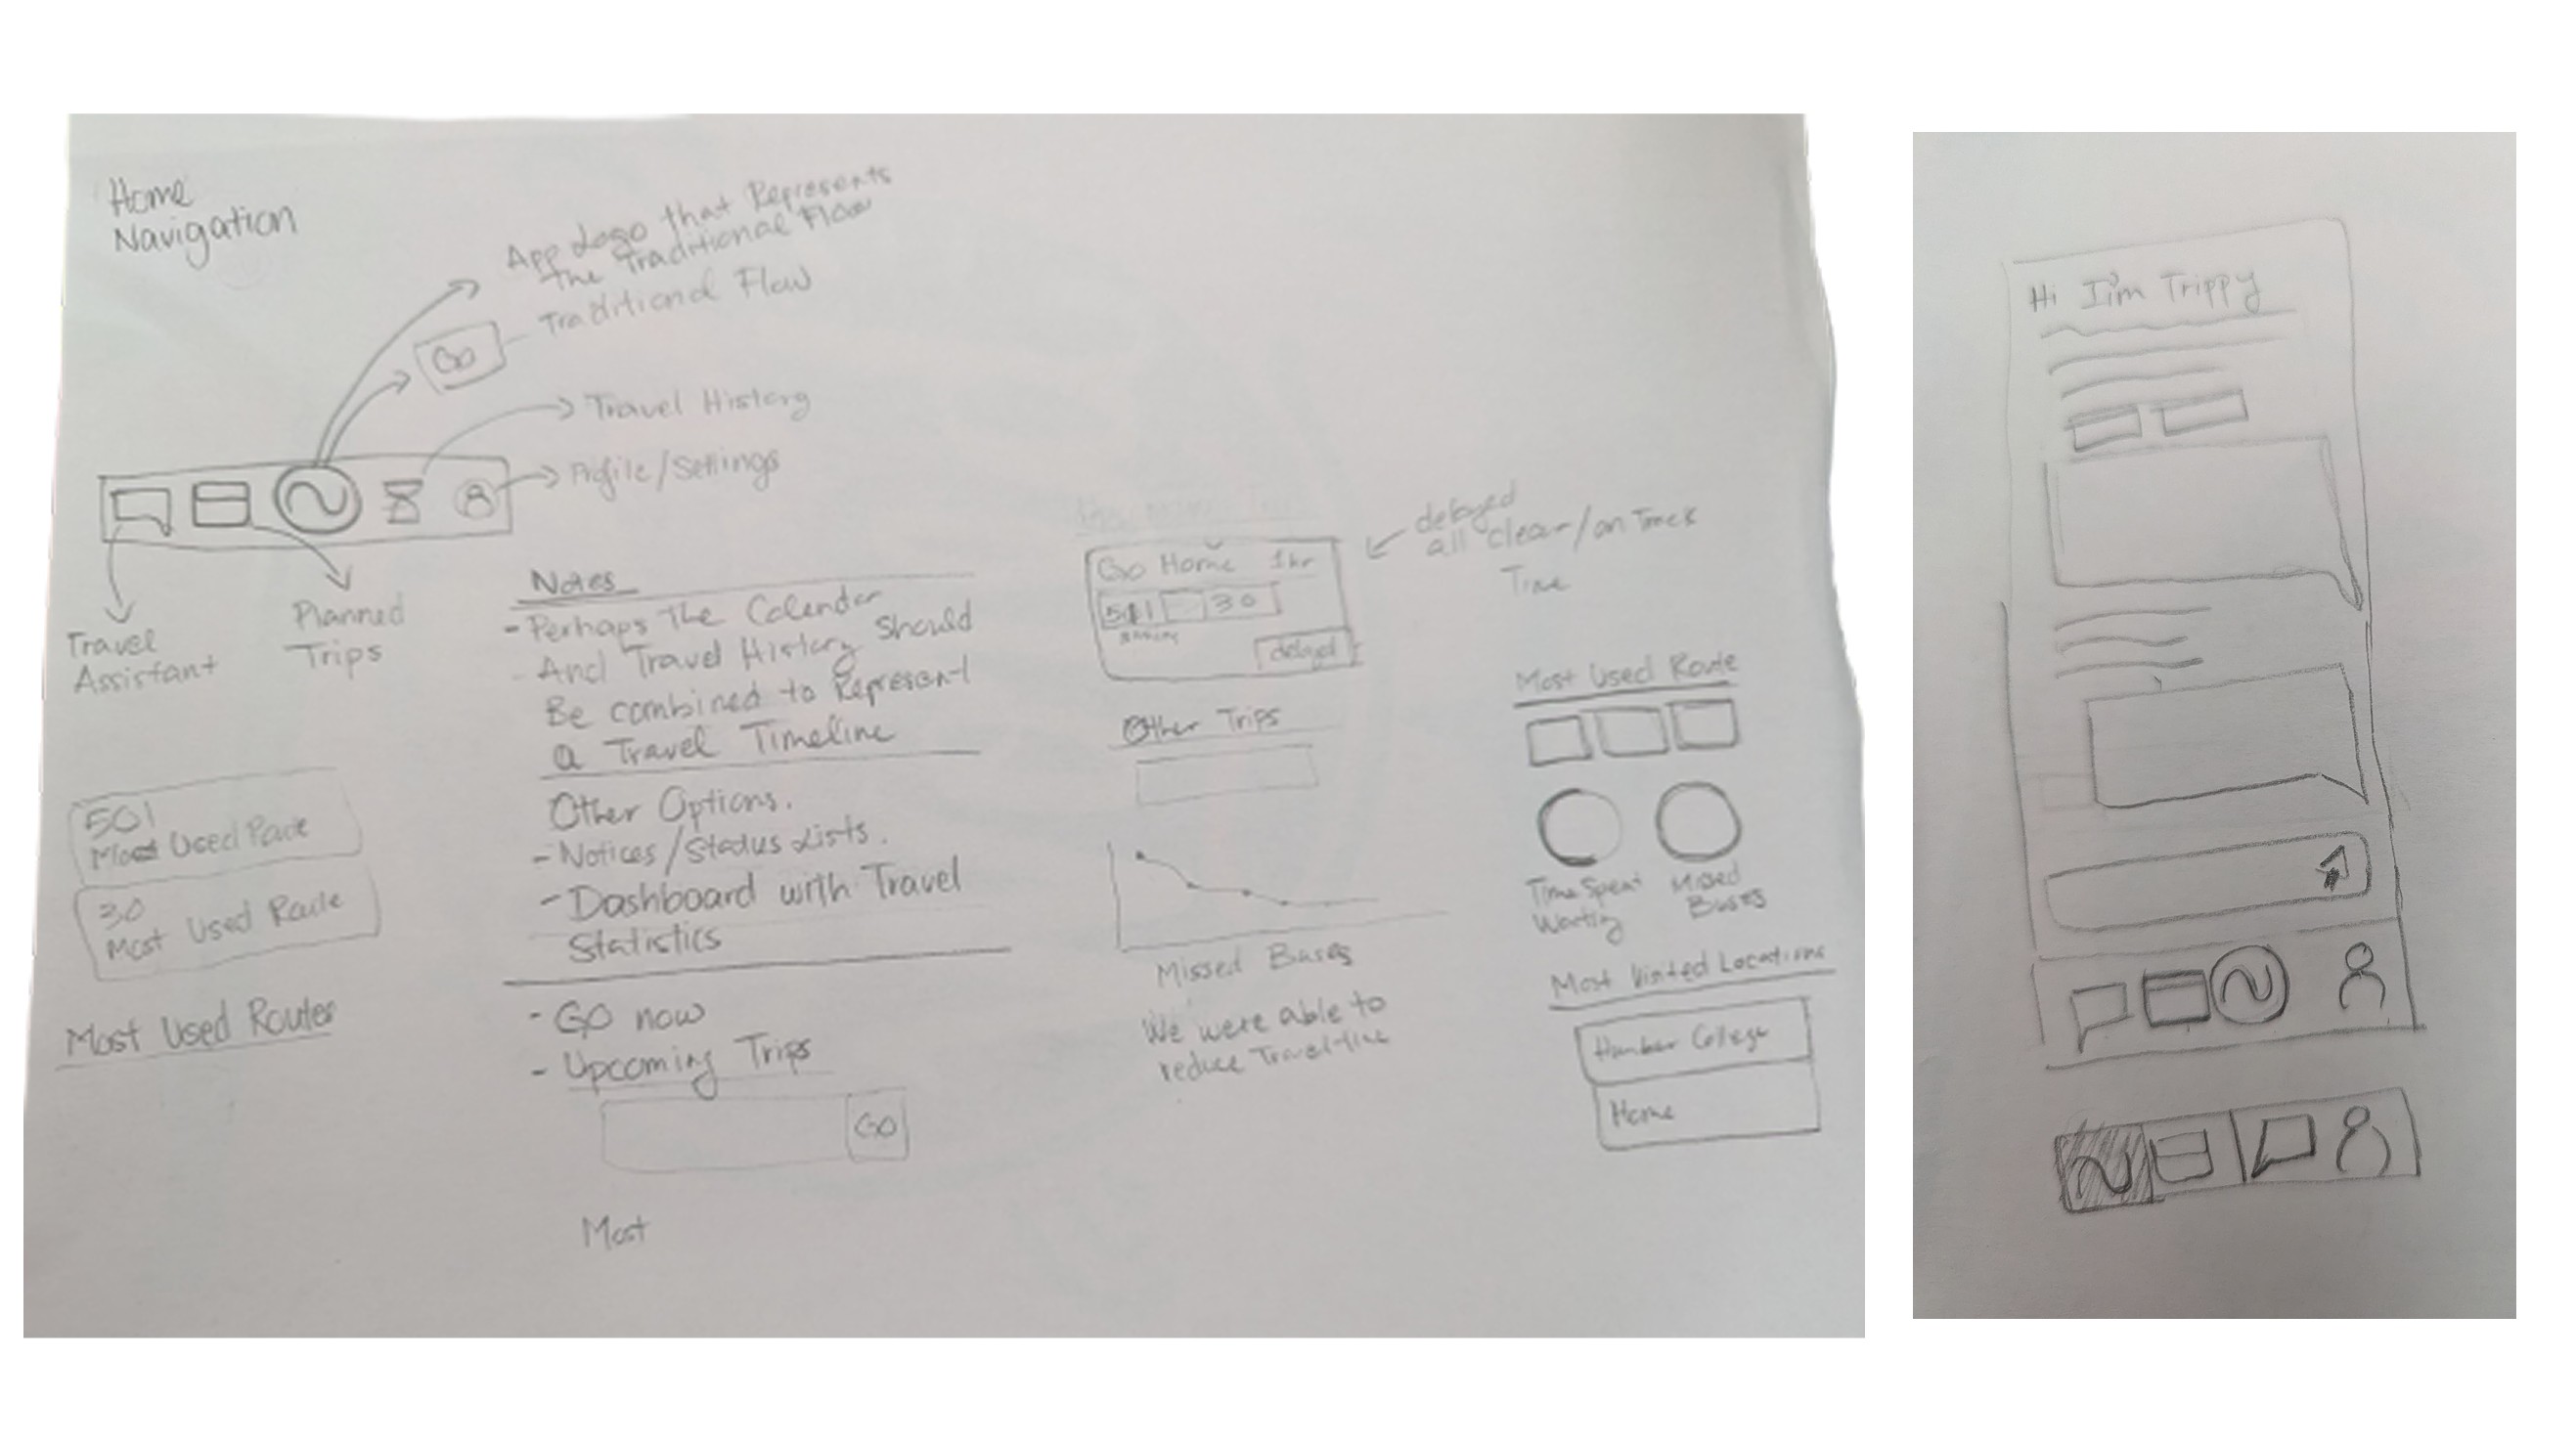 Home
Navigation
App Logo that Represents
the Traditional Flow
Traditional Flow
Go
Travel History
Profile/Settings
Travel
Assistant
Planned
Trips
501
Most Used Route
30
Most Used Route
Most Used Routes
Notes
- Perhaps The Calendar
- And Travel History should
Be combined to Represent
a Travel Timeline
Other Options.
- Notices/Status Lists.
- Dashboard with Travel
Statistics
- GO now
- Upcoming Trips
GO
Most
Go Home 1hr
501 30
delayed
delayed
all clear/on Track
Time
Other Trips
Missed Buses
We were able to
reduce Travel-time
Most Used Route
Time Spent
Waiting
Missed
Buses
Most Visited Locations
Humber College
Home
Hi I'm Trippy